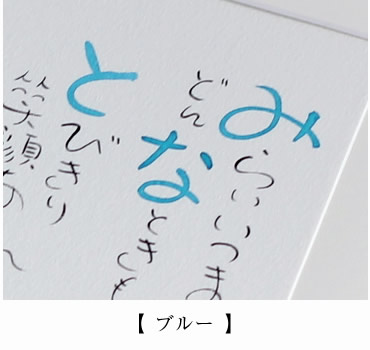 みらいいつま
どん
なときも
とびきり
笑顔の
【 ブルー 】